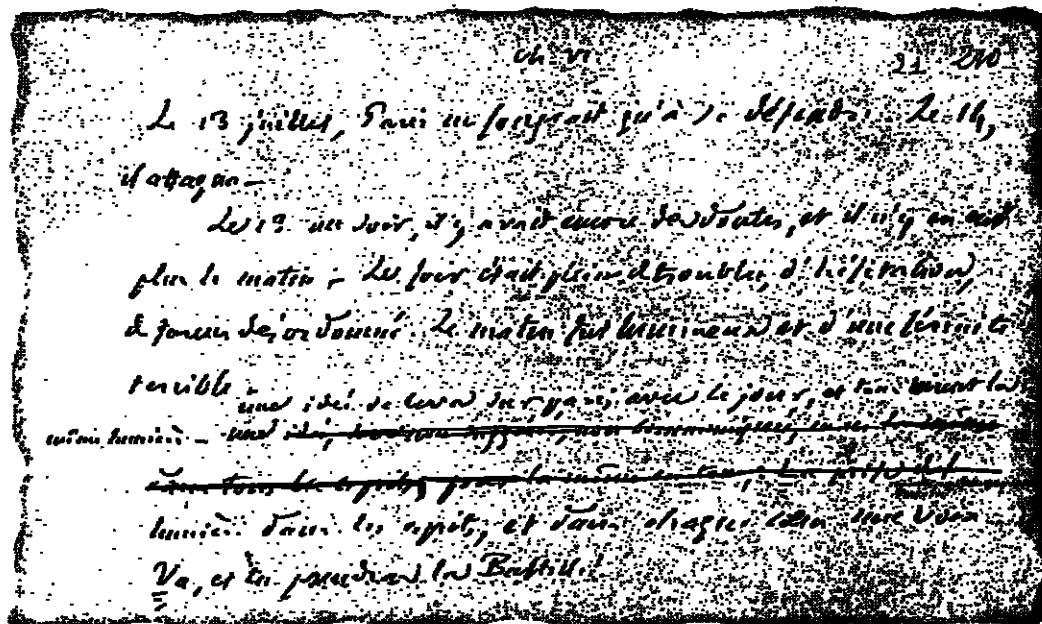 ch. VI. 21 210
Le 13 juillet, Paris ne songeait qu'à se défendre. Le 14,
il attaqua —
Le 13 au soir, il y avait encore des doutes, et il n'y en eut
plus le matin ; Le soir était plein de troubles, d'hésitation,
de fureur désordonnée. Le matin fut lumineux et d'une sérénité
terrible.
une idée se leva sur Paris avec le jour, et tous virent la
même lumière — une idée, non communiquée, la même
dans tous les esprits,
lumière dans les esprits, et dans chaque cœur une voix
Va, et tu prendras la Bastille!